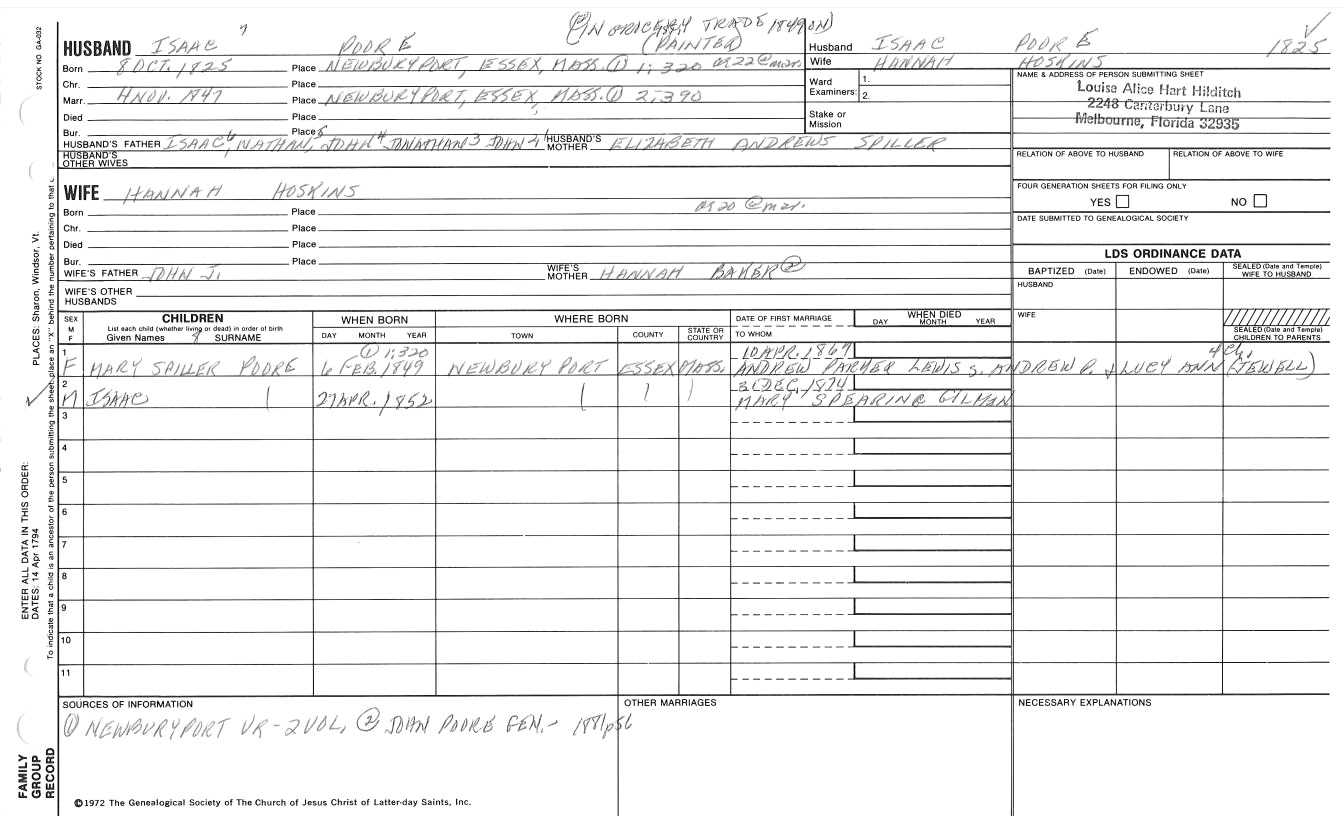 STOCK NO GA-032
HUSBAND ISAAC 7 POORE
② IN GROCERY TRADE 1849 ON)
(PAINTER)
Born 8 OCT. 1825 Place NEWBURYPORT, ESSEX, MASS. ① 1; 320 æ 22 @ mar.
Chr. Place
Marr. 4 NOV. 1847 Place NEWBURYPORT, ESSEX, MASS. ① 2; 390
Died Place
Bur. Place
HUSBAND'S FATHER ISAAC 6, NATHAN 5, JOHN 4 JONATHAN 3 JOHN 2, 1 HUSBAND'S MOTHER ELIZABETH ANDREWS SPILLER
HUSBAND'S OTHER WIVES
Husband ISAAC POORE 1825
Wife HANNAH HOSKINS
Ward Examiners: 1. 2.
Stake or Mission
NAME & ADDRESS OF PERSON SUBMITTING SHEET
Louise Alice Hart Hilditch
2248 Canterbury Lane
Melbourne, Florida 32935
RELATION OF ABOVE TO HUSBAND RELATION OF ABOVE TO WIFE
FOUR GENERATION SHEETS FOR FILING ONLY
YES NO
DATE SUBMITTED TO GENEALOGICAL SOCIETY
WIFE HANNAH HOSKINS
Born Place æ 20 @ mar.
Chr. Place
Died Place
Bur. Place
WIFE'S FATHER JOHN J. WIFE'S MOTHER HANNAH BAKER ②
WIFE'S OTHER HUSBANDS
LDS ORDINANCE DATA
BAPTIZED (Date) ENDOWED (Date) SEALED (Date and Temple) WIFE TO HUSBAND
HUSBAND
WIFE
SEALED (Date and Temple) CHILDREN TO PARENTS
SEX M F
CHILDREN
List each child (whether living or dead) in order of birth
Given Names 8 SURNAME
WHEN BORN
DAY MONTH YEAR
WHERE BORN
TOWN COUNTY STATE OR COUNTRY
DATE OF FIRST MARRIAGE
TO WHOM
WHEN DIED
DAY MONTH YEAR
① 1; 320 10 APR. 1867 4 Ch.
1 F MARY SPILLER POORE 6 FEB. 1849 NEWBURYPORT ESSEX MASS. ANDREW PARKER LEWIS S. ANDREW P. & LUCY ANN (JEWELL)
31 DEC. 1874
2 M ISAAC 27 APR. 1852 MARY SPEARING GILMAN
3
4
5
6
7
8
9
10
11
SOURCES OF INFORMATION
① NEWBURYPORT VR - 2 VOL. ② JOHN POORE GEN. - 1881 p 56
OTHER MARRIAGES
NECESSARY EXPLANATIONS
©1972 The Genealogical Society of The Church of Jesus Christ of Latter-day Saints, Inc.
FAMILY GROUP RECORD
ENTER ALL DATA IN THIS ORDER:
DATES: 14 Apr 1794
PLACES: Sharon, Windsor, Vt.
To indicate that a child is an ancestor of the person submitting the sheet, place an "X" behind the number pertaining to that